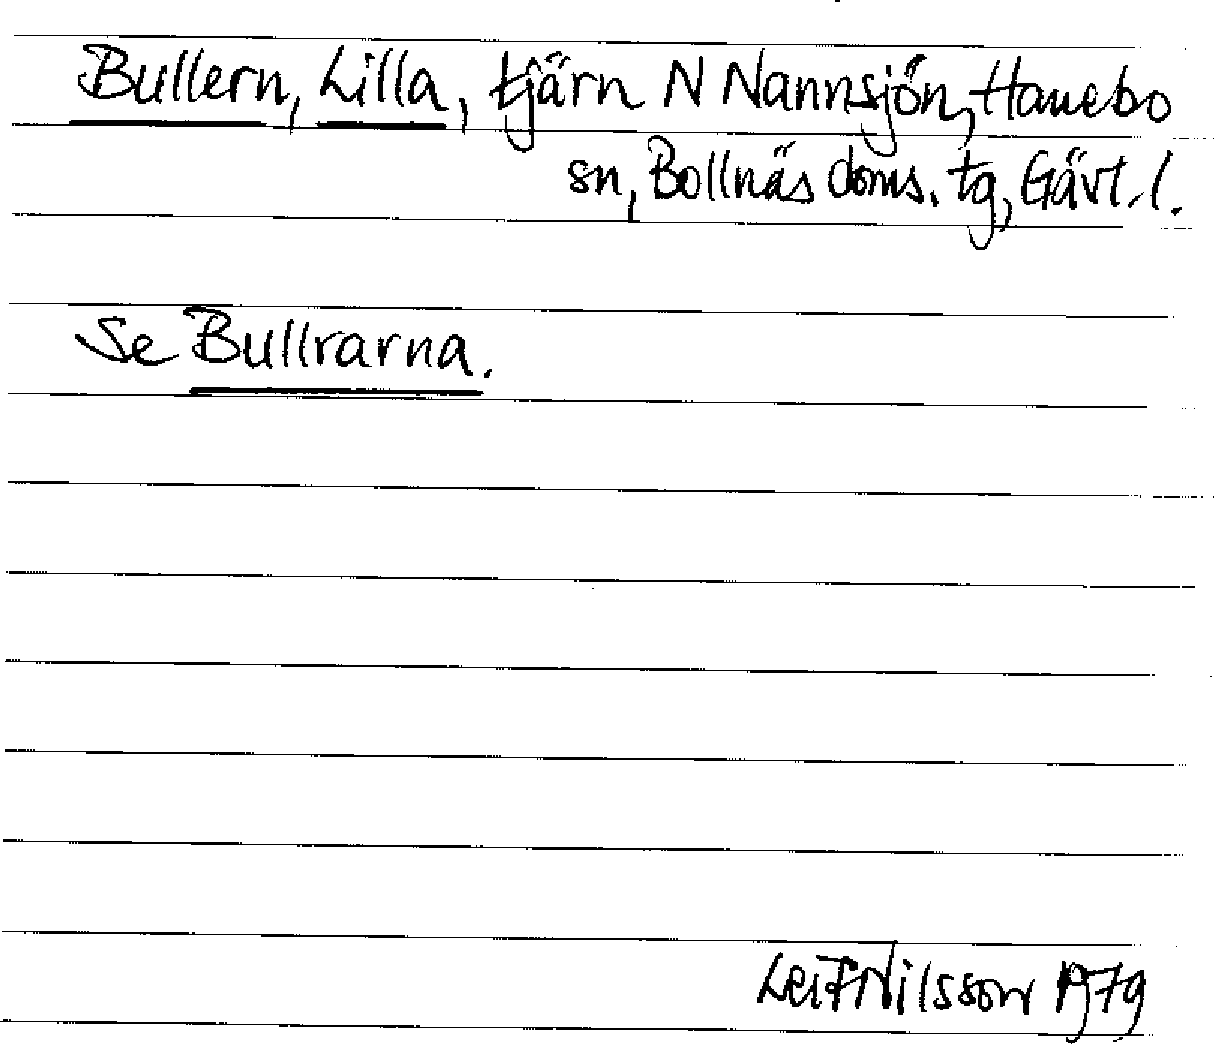 Bullern, Lilla, tjärn N Nannsjön, Hanebo
sn, Bollnäs doms. tg, Gävl. l.
Se Bullrarna.
Leif Nilsson 1979